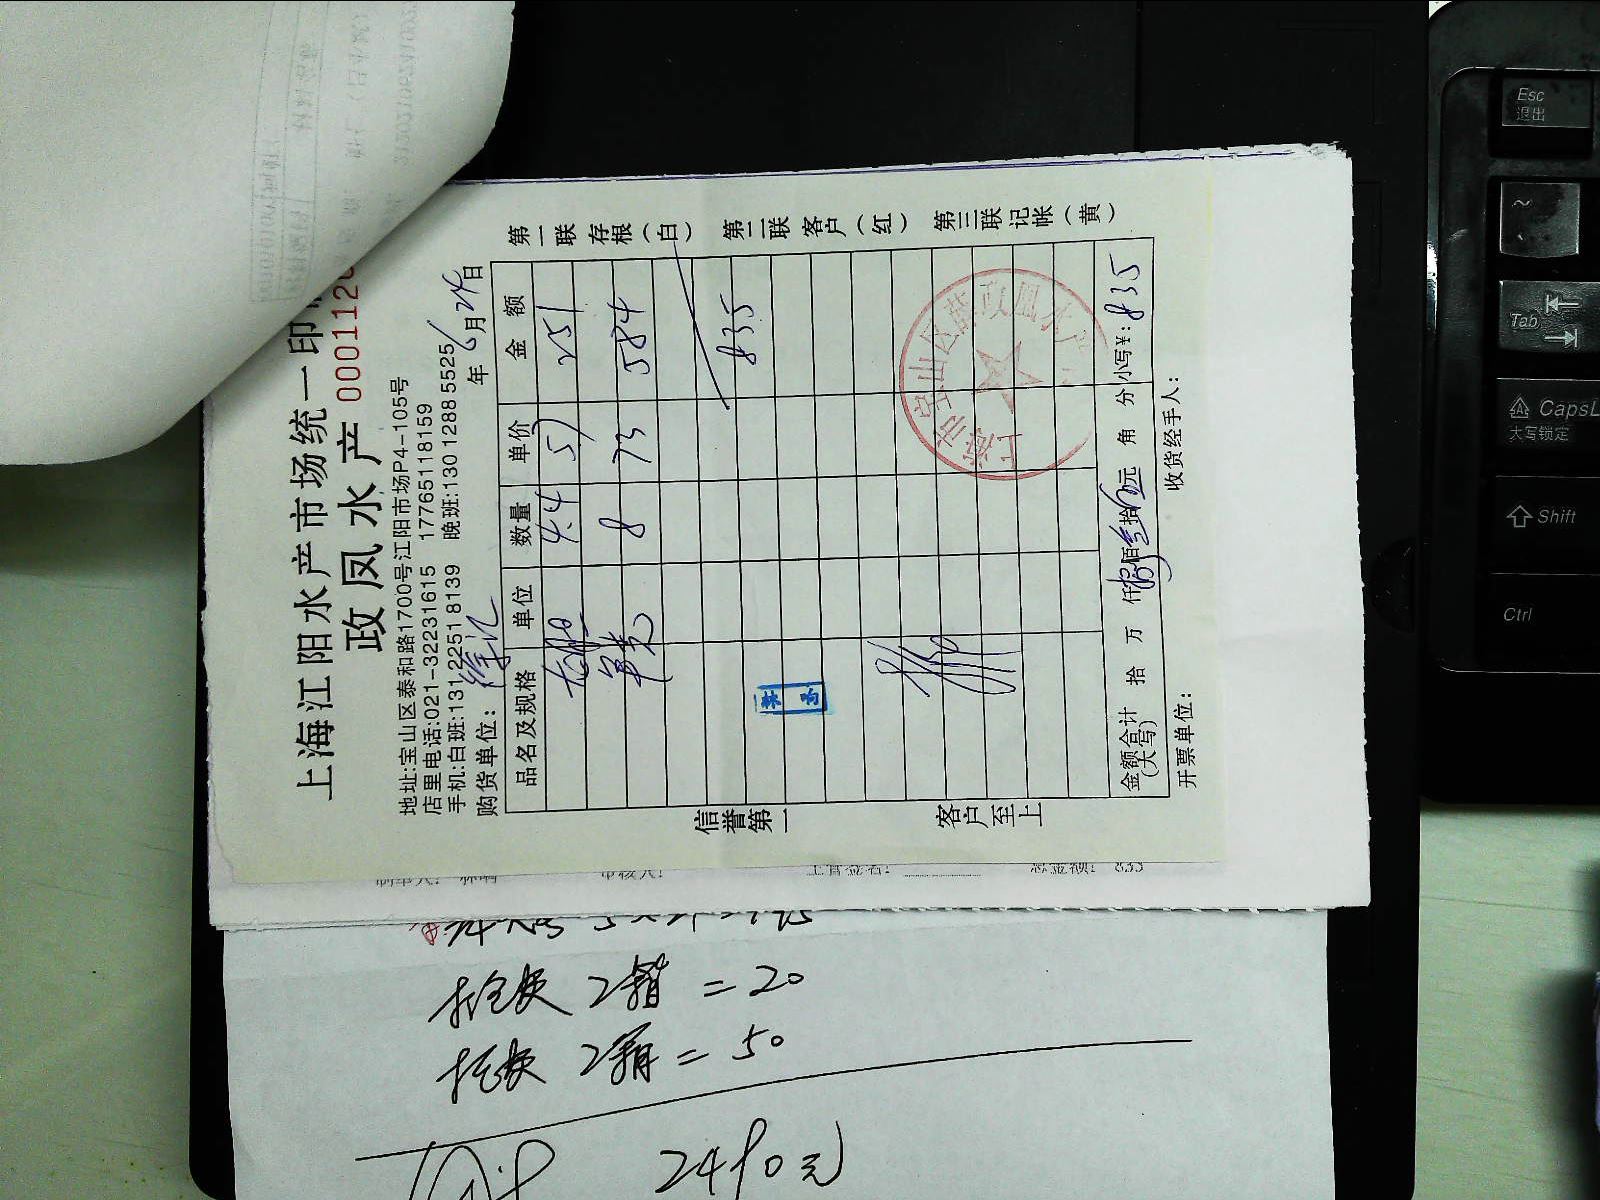 上海江阳水产市场统一印
政凤水产 0001120
地址:宝山区泰和路1700号江阳市场P4-105号
店里电话:021-32231615 17765118159
手机:白班:131 2251 8139 晚班:130 1288 5525
购货单位: 徐记 年 6月24日
品名及规格 单位 数量 单价 金额
4.4 57 251
8 73 584
835
信誉第一
客户至上
金额合计(大写) 拾 万 仟 捌佰叁拾伍元 角 分 小写¥: 835
开票单位: 收货经手人:
第一联 存根(白) 第二联 客户(红) 第三联 记帐(黄)
上海市宝山区薛政凤水产
制单人: 审核人: 主管签名: 总金额: 835
2箱 = 20
2箱 = 50
2490元
Esc
退出
~
Tab
CapsL
大写锁定
Shift
Ctrl